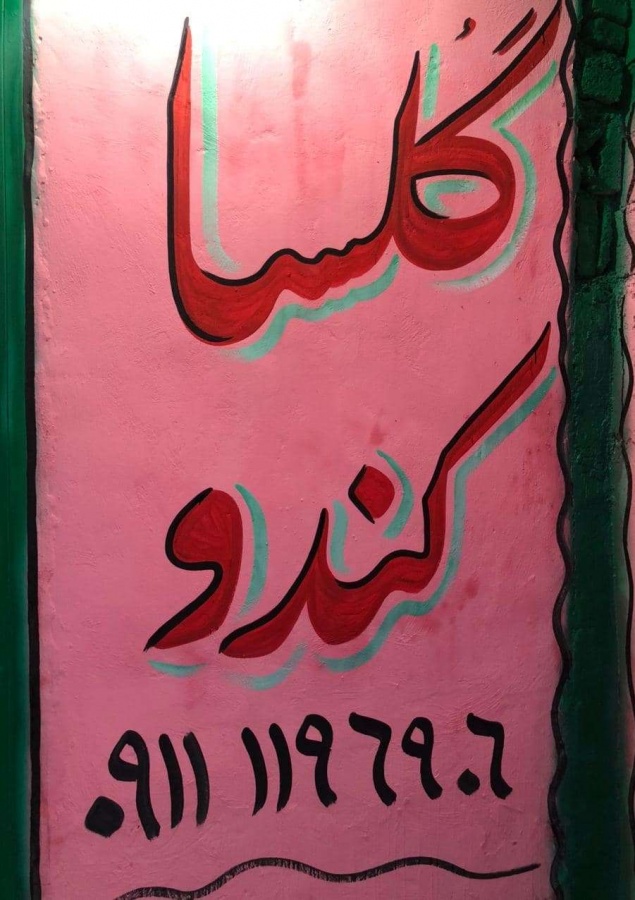 گُلسا
کندو
۰۹۱۱ ۱۱۹۶۹۰۶